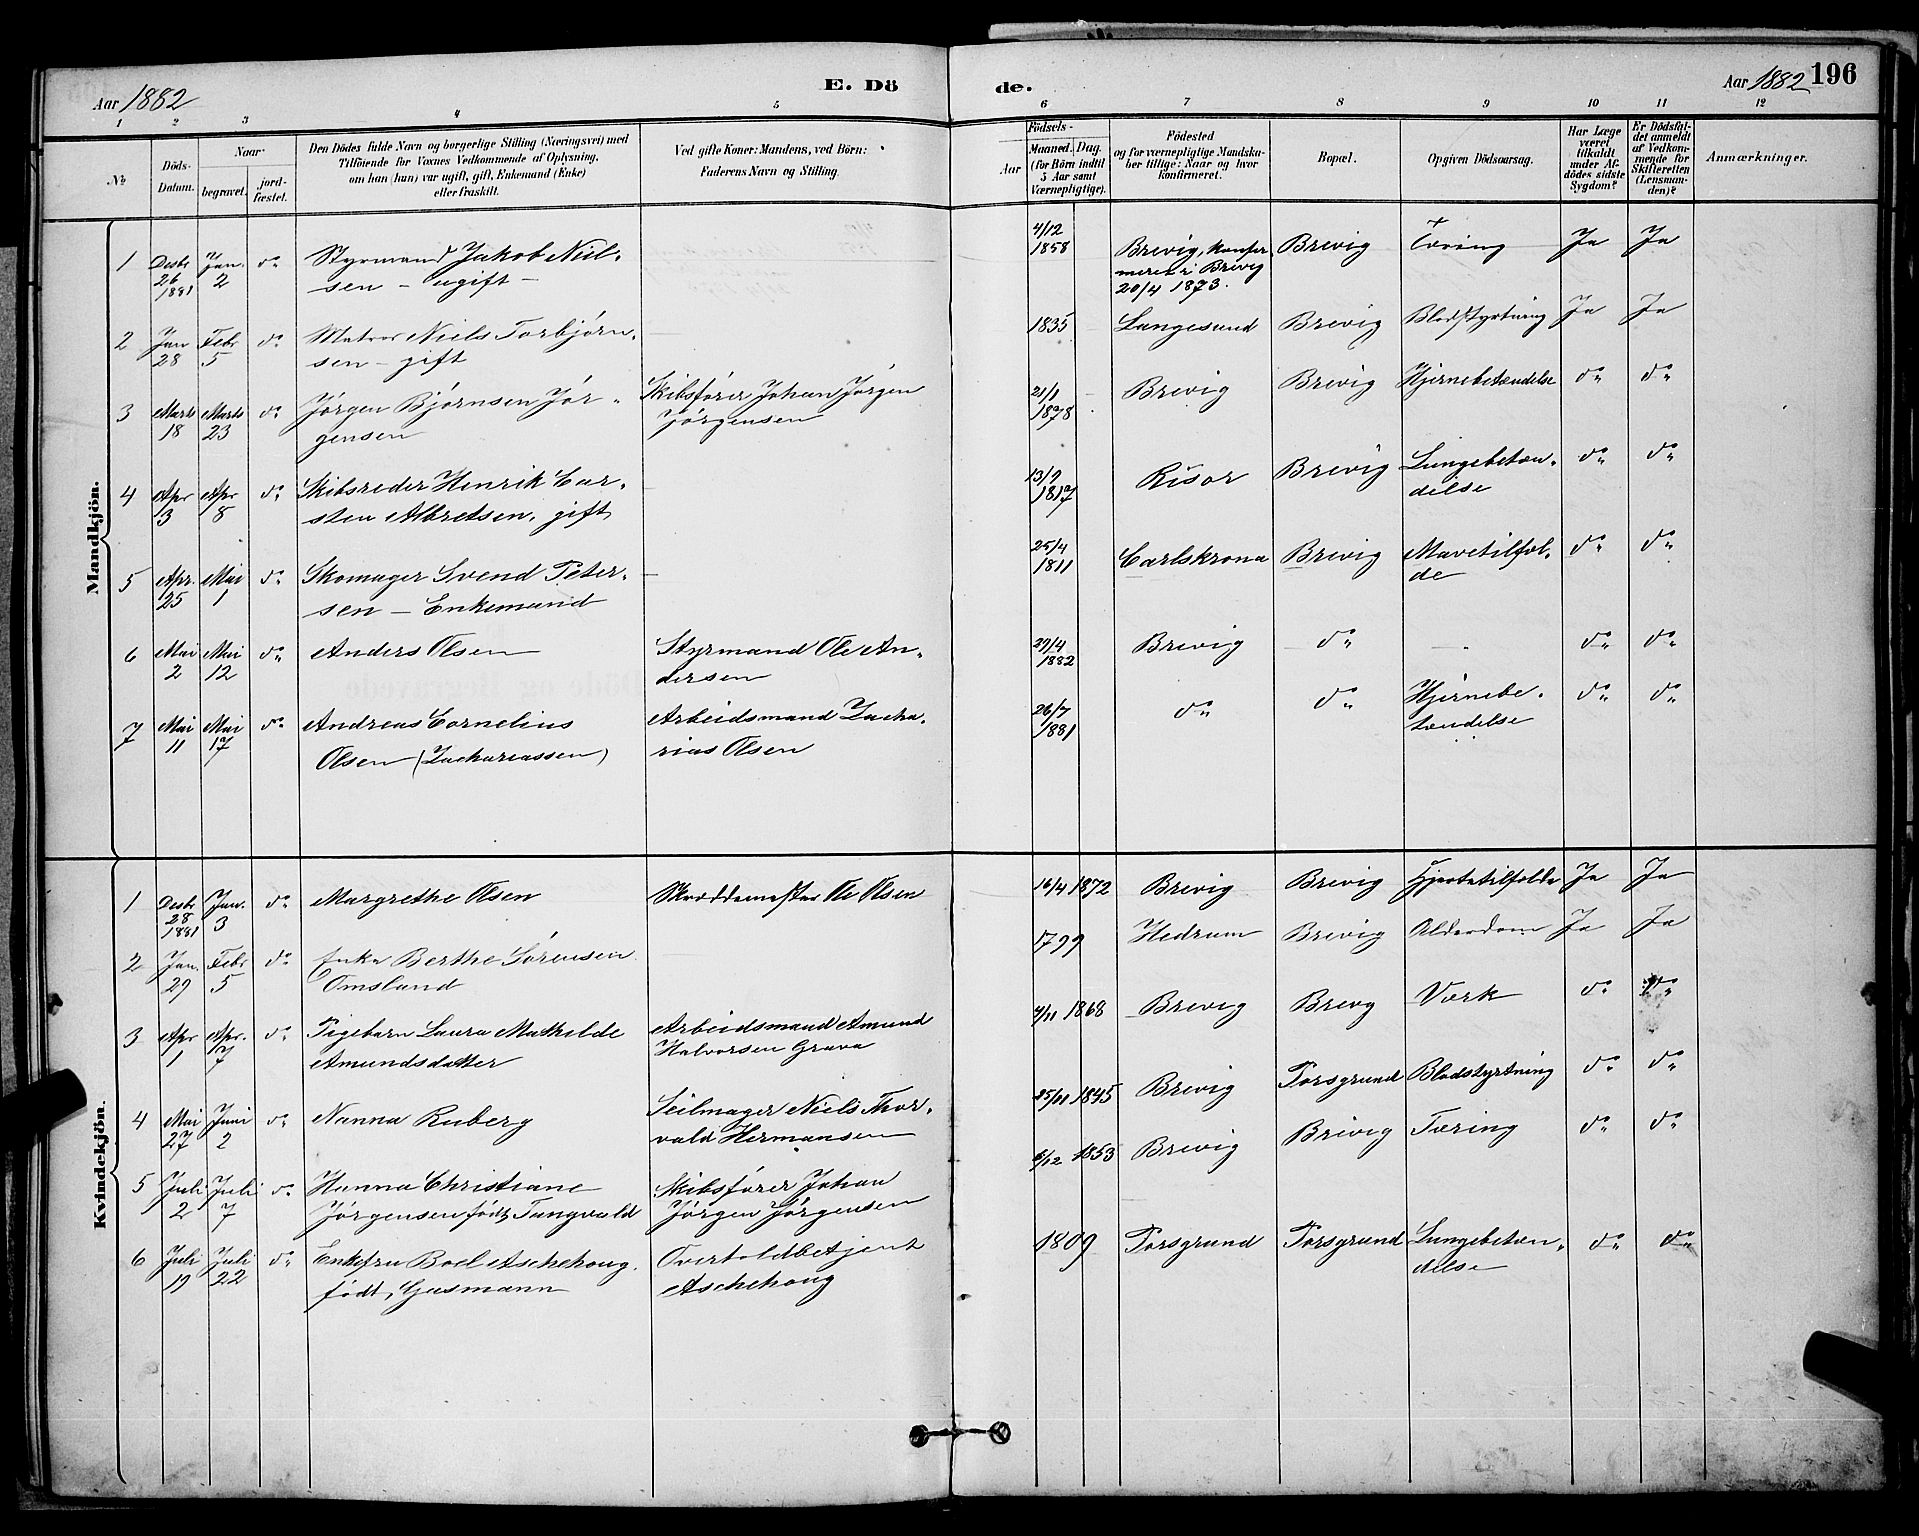 Aar 1882
E. Dö
de.
Aar 1882
196
1 2 3 4 5 6 7 8 9 10 11 12
№
Döds-
Datum.
Naar
begravet.
jord-
fæstet.
Den Dödes fulde Navn og borgerlige Stilling (Næringsvei) med
Tilföiende for Voxnes Vedkommende af Oplysning,
om han (hun) var ugift, gift, Enkemand (Enke)
eller fraskilt.
Ved gifte Koner: Mandens, ved Börn:
Faderens Navn og Stilling.
Födsels-
Aar
Maaned. Dag.
(for Börn indtil
5 Aar samt
Værnepligtige).
Födested
og for værnepligtige Mandska-
ber tillige: Naar og hvor
konfirmeret.
Bopæl.
Opgiven Dödsaarsag.
Har Læge
været
tilkaldt
under Af-
dödes sidste
Sygdom?
Er Dödsfal-
det anmeldt
af Vedkom-
mende for
Skifteretten
(Lensman-
den)?
Anmærkninger.
Mandkjön.
1 Desbr 26 1881 Jan. 2 do Styrmand Jakob Niel-
sen - ugift -
4/12 1858 Brevig, konfir
meret i Brevig
20/4 1873.
Brevig Tæring Ja Ja
2 Jan 28 Febr 5 do Matros Niels Torbjörn-
sen - gift
1835 Langesund Brevig Blodstyrtning Ja Ja
3 Marts 18 Marts 23 do Jörgen Björnsen Jör-
gensen
Skibsförer Johan Jörgen
Jörgensen
21/1 1878 Brevig Brevig Hjernebetændelse do do
4 Apr 3 Apr 8 do Skibsreder Henrik Car-
sten Albretsen, gift
13/9 1817 Risör Brevig Lungebetæn-
delse do do
5 Apr. 25 Mai 1 do Skomager Svend Peter-
sen - Enkemand
25/4 1811 Carlskrona Brevig Mavetilfæl-
de do do
6 Mai 2 Mai 12 do Anders Olsen
Styrmand Ole An-
dersen
29/4 1882 Brevig do - do do
7 Mai 11 Mai 17 do Andreas Cornelius
Olsen (Zachariassen)
Arbeidsmand Zacha-
rias Olsen
26/7 1881 do do Hjernebe-
tændelse do do
Kvindekjön.
1 Desbr 28 1881 Jan. 3 do Margrethe Olsen
Skræddemester Ole Olsen
16/4 1872 Brevig Brevig Hjertetilfælde Ja Ja
2 Jan. 29 Febr 5 do Enke Berthe Sörensen
Omsland
1799 Hedrum Brevig Alderdom Ja Ja
3 Apr 1 Apr. 7 do Pigebarn Laura Mathilde
Amundsdatter
Arbeidsmand Amund
Halvorsen Grava
9/11 1868 Brevig Brevg Værk do do
4 Mai 27 Juni 2 do Nanna Ruberg
Seilmager Niels Thor-
vald Hermansen
25/11 1845 Brevig Porsgrund Blodstyrtning do do
5 Juli 2 Juli 7 do Hanna Christiane
Jörgensen födt Tangvald
Skibsförer Johan
Jörgen Jörgensen
6/12 1853 Brevig Brevig Tæring do do
6 Juli 19 Juli 22 do Enkefru Boel Aschehoug.
födt, Gasmann
Overtoldbetjent
Aschehoug
1809 Porsgrund Porsgrund Lungebetæn-
delse do do